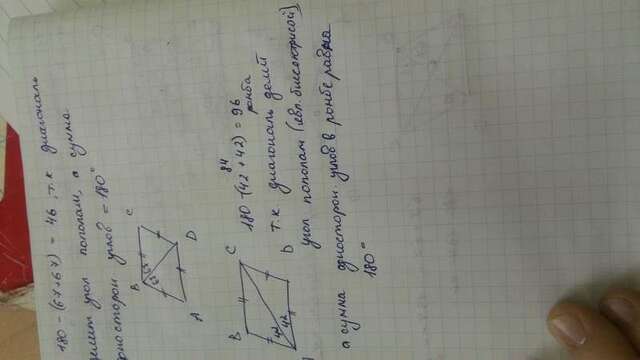 180 - (67+67) = 46, т.к диагональ
делит угол пополам, а сумма
односторон углов = 180°
B
C
67
67
A
D
B
C
42
42
D
84
180 - (42 + 42) = 96
ромба
т.к диагональ делит
угол пополам (явл. биссектрисой)
а сумма односторон. углов в ромбе равна
180°